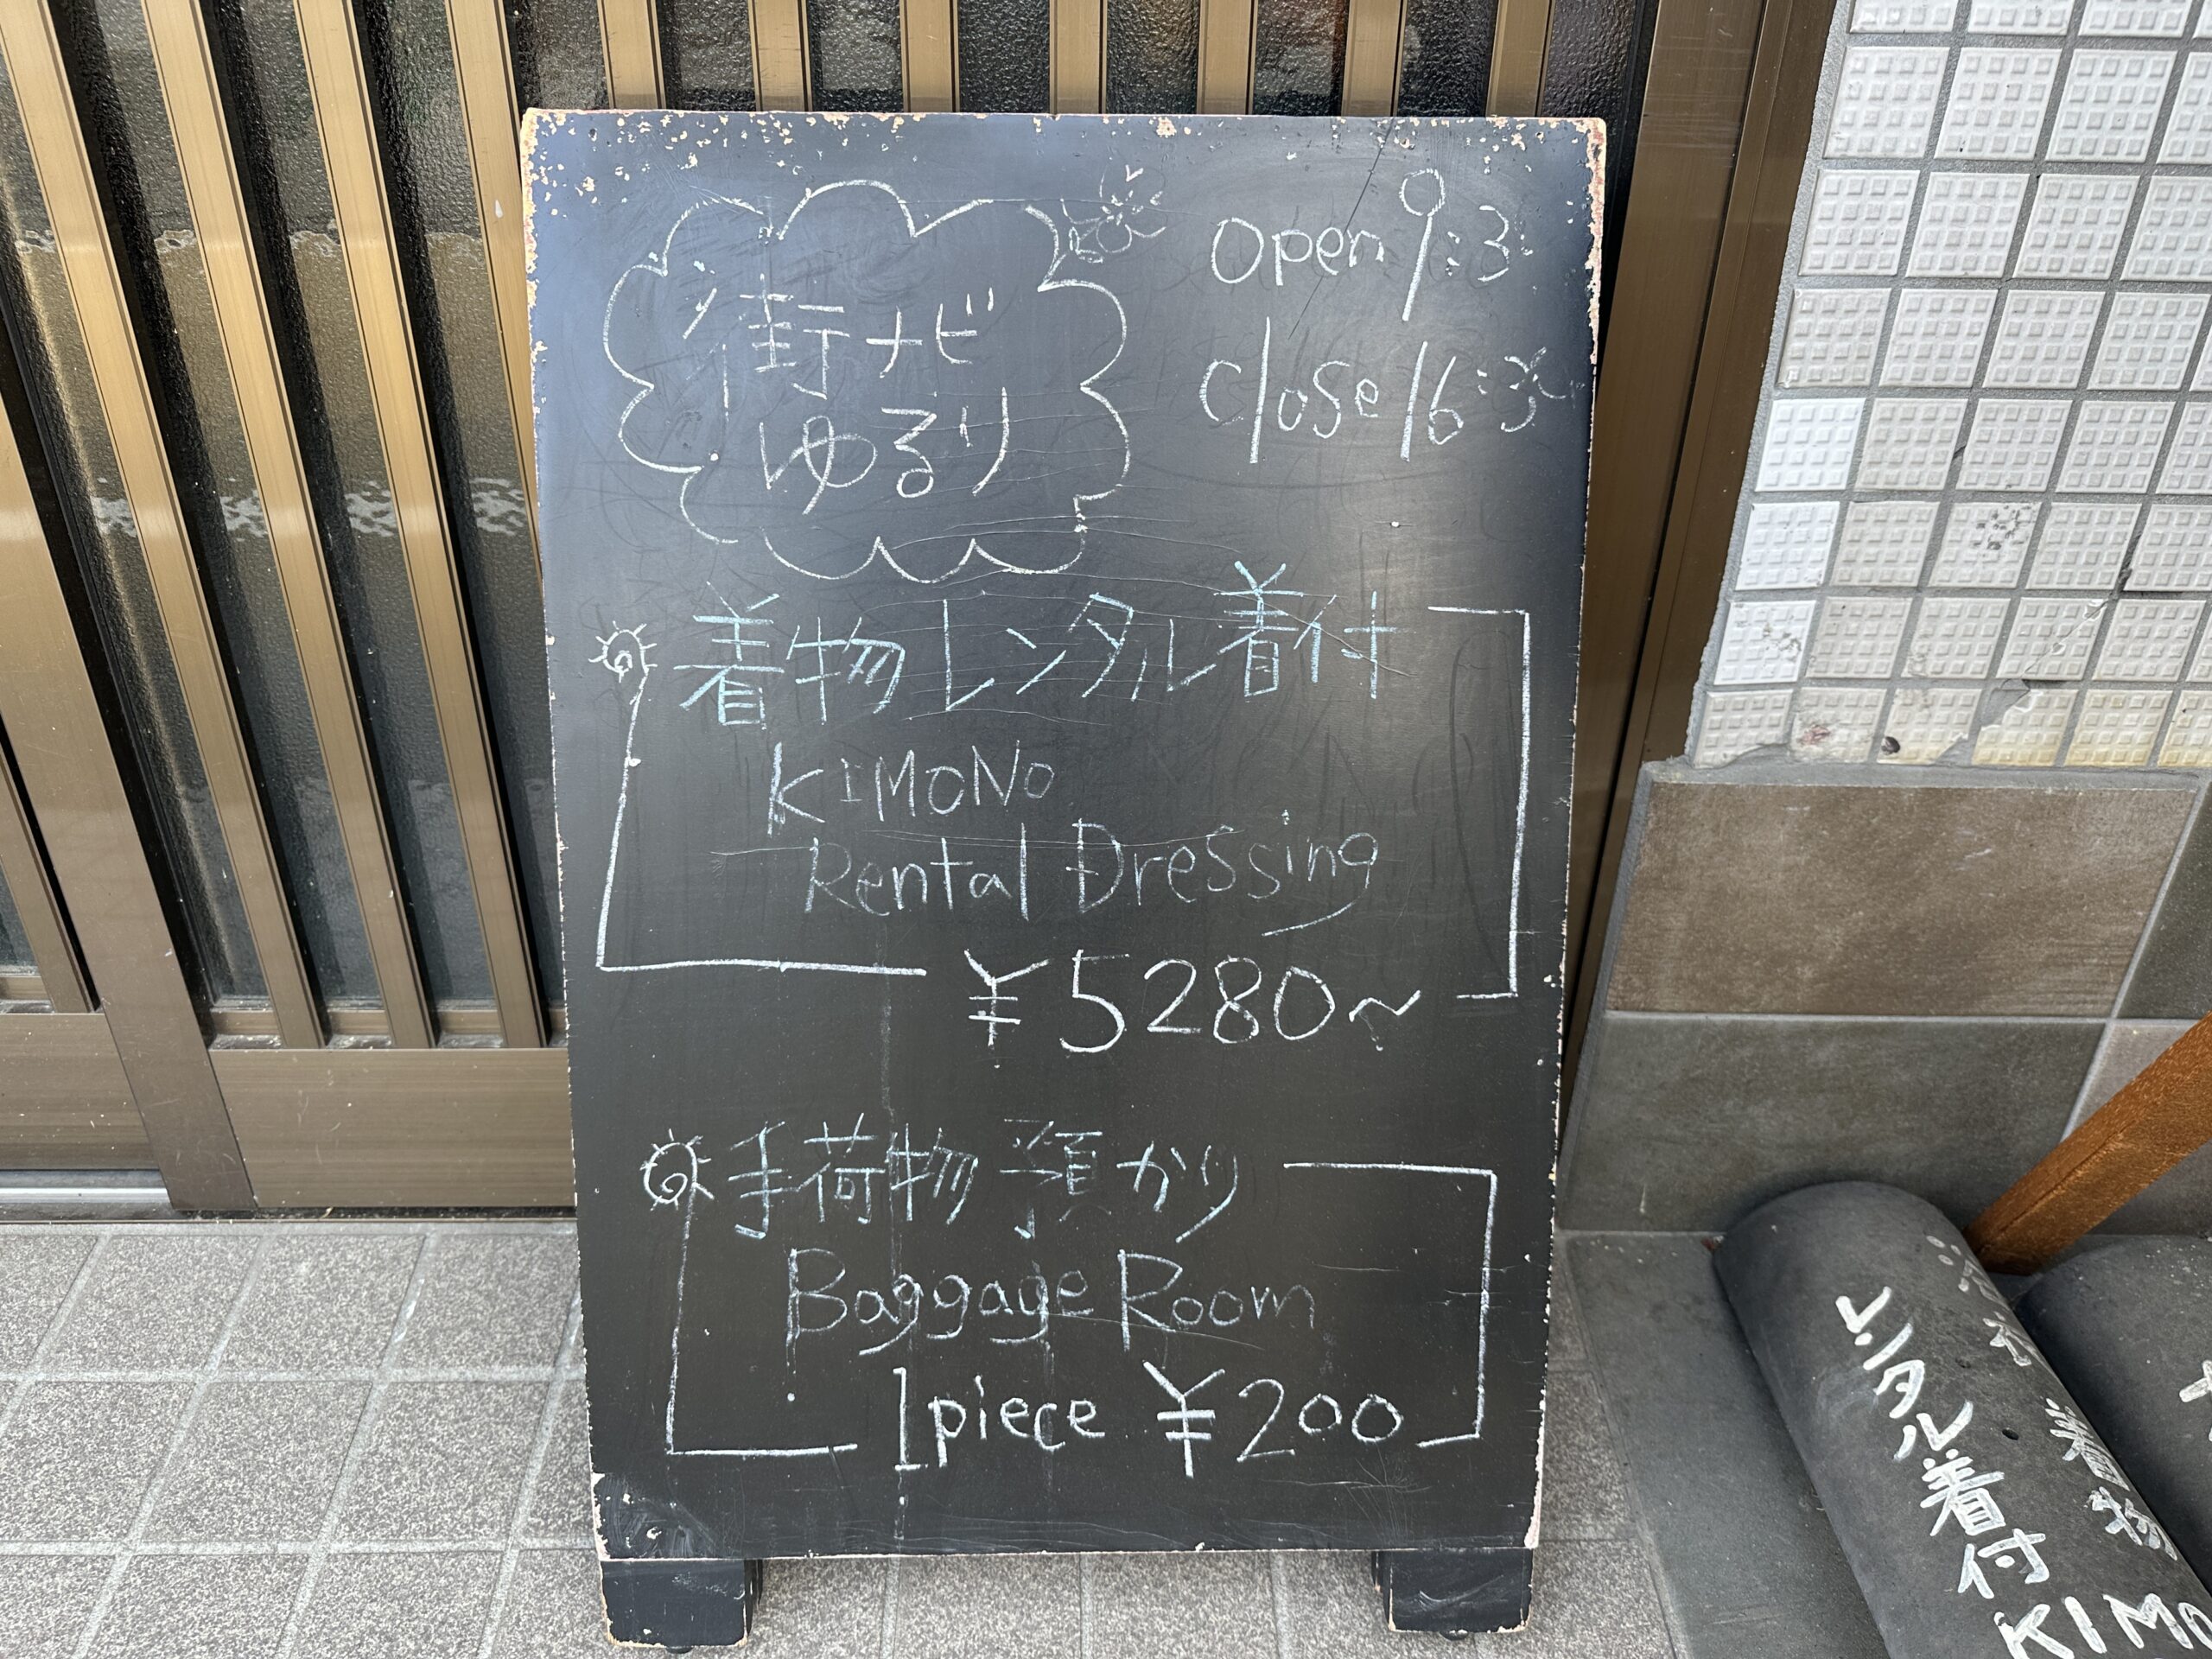 街ナビ
ゆるり
open 9:3
close 16:3
着物レンタル着付
KIMONO
Rental Dressing
¥5280~
手荷物預かり
Baggage Room
1piece ¥200
着物
レンタル着付
KIMO